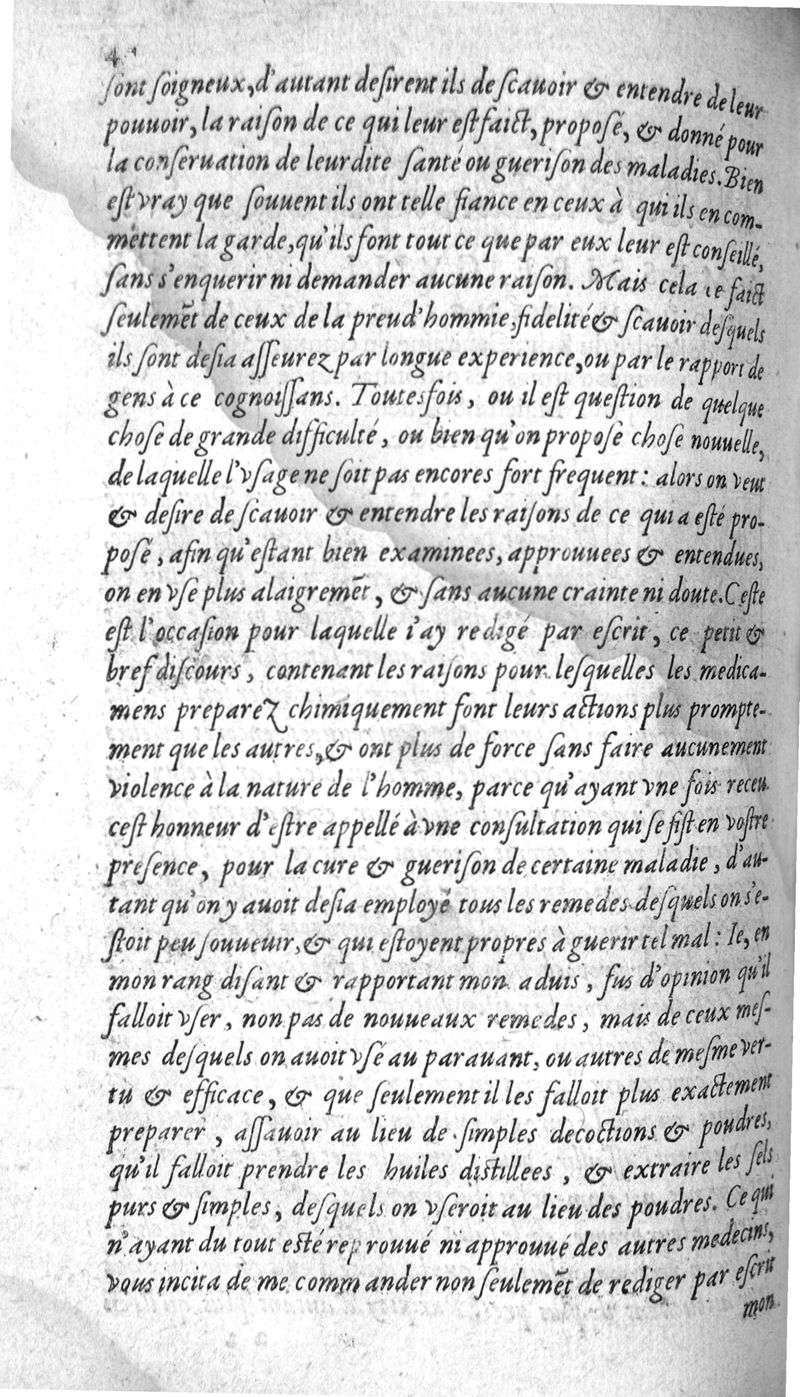 4
sont soigneux, d'autant desirent ils de scauoir & entendre de leur
pouuoir, la raison de ce qui leur est faict, proposé, & donné pour
la conseruation de leurdite santé ou guerison des maladies. Bien
est vray que souuent ils ont telle fiance en ceux à qui ils en com-
mettent la garde, qu'ils font tout ce que par eux leur est conseillé,
sans s'enquerir ni demander aucune raison. Mais cela se faict
seulemēt de ceux de la preud'hommie, fidelité & scauoir desquels
ils sont desia asseurez par longue experience, ou par le rapport de
gens à ce cognoissans. Toutesfois, ou il est question de quelque
chose de grande difficulté, ou bien qu'on propose chose nouuelle,
de laquelle l'vsage ne soit pas encores fort frequent: alors on veut
& desire de scauoir & entendre les raisons de ce qui a esté pro-
posé, afin qu'estant bien examinees, approuuees & entendues,
on en vse plus alaigremēt, & sans aucune crainte ni doute. Ceste
est l'occasion pour laquelle i'ay redigé par escrit, ce petit &
bref discours, contenant les raisons pour lesquelles les medica-
mens preparez chimiquement font leurs actions plus prompte-
ment que les autres, & ont plus de force sans faire aucunement
violence à la nature de l'homme, parce qu'ayant vne fois receu
cest honneur d'estre appellé à vne consultation qui se fist en vostre
presence, pour la cure & guerison de certaine maladie, d'au-
tant qu'on y auoit desia employé tous les remedes desquels on s'e-
stoit peu souuenir, & qui estoyent propres à guerir tel mal: Ie, en
mon rang disant & rapportant mon aduis, fus d'opinion qu'il
falloit vser, non pas de nouueaux remedes, mais de ceux mes-
mes desquels on auoit vsé au parauant, ou autres de mesme ver-
tu & efficace, & que seulement il les falloit plus exactement
preparer, assauoir au lieu de simples decoctions & poudres,
qu'il falloit prendre les huiles distillees, & extraire les sels
purs & simples, desquels on vseroit au lieu des poudres. Ce qui
n'ayant du tout esté reprouué ni approuué des autres medecins,
vous incita de me commander non seulemēt de rediger par escrit
mon